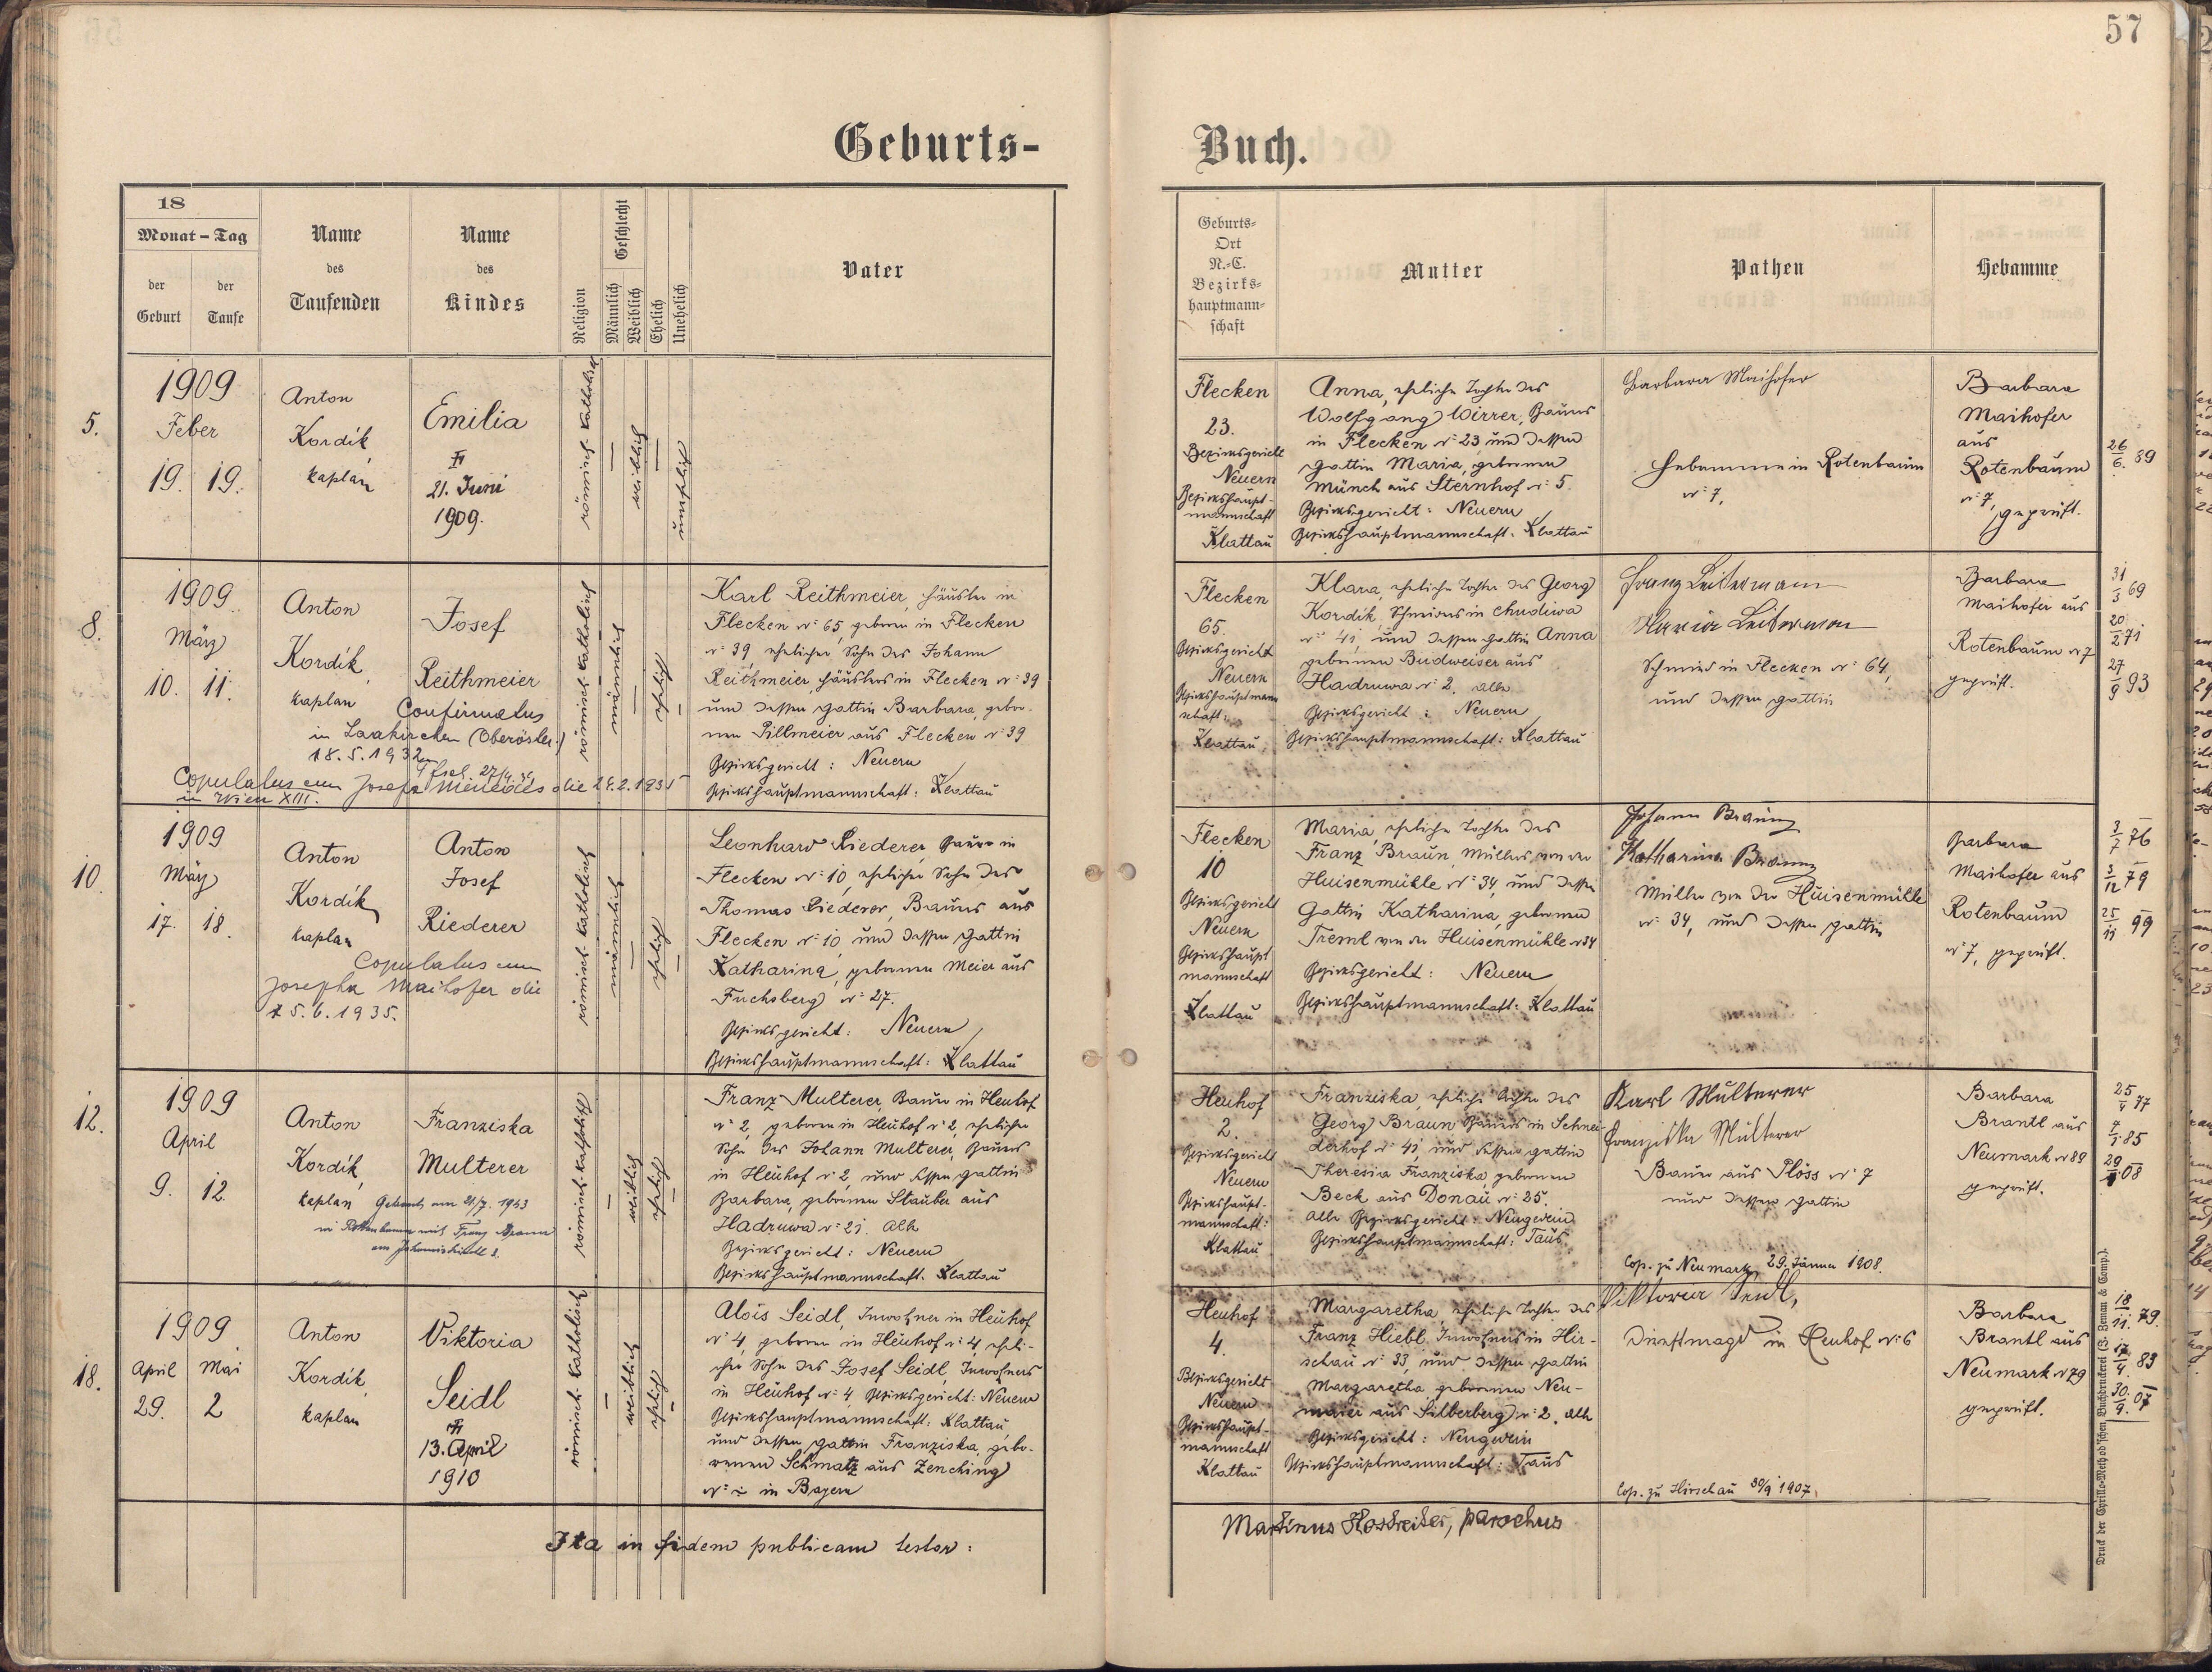 57
Geburts-
Buch.
18
Monat - Tag
der Geburt
der Taufe
Name des Taufenden
Name des Kindes
Religion
Geschlecht
Männlich
Weiblich
Ehelich
Unehelich
Vater
Geburts-
Ort
N.-C.
Bezirks-
hauptmann-
schaft
Mutter
Pathen
Hebamme
5.
1909
Feber
19. 19.
Anton
Kordík,
kaplan
Emilia
21. Juni
1909.
römisch-katholisch
weiblich
unehelich
Flecken
23.
Bezirksgericht
Neuern
Bezirkshaupt-
mannschaft
Klattau
Anna, eheliche Tochter des
Wolfgang Wirrer, Bauers
in Flecken N: 23 und dessen
Gattin Maria, gebornen
Münch aus Sternhof N: 5.
Bezirksgericht: Neuern
Bezirkshauptmannschaft: Klattau
Barbara Maihofer
Hebamme in Rotenbaum
N: 7.
Barbara
Maihofer
aus
Rotenbaum
N: 7,
geprüft.
26/6. 89
8.
1909.
März
10. 11.
Anton
Kordík,
kaplan
Josef
Reithmeier
Confirmatus
in Laakirchen (Oberösterr.)
18.5.1932
Copulatus cum Josefa die 24.2.1935
in Wien XIII.
römisch-katholisch
männlich
ehelich
Karl Reithmeier, Häusler in
Flecken N: 65, geboren in Flecken
N: 39, ehelicher Sohn des Johann
Reithmeier, Häuslers in Flecken N: 39
und dessen Gattin Barbara, gebor-
nen Pillmeier aus Flecken N: 39
Bezirksgericht: Neuern
Bezirkshauptmannschaft: Klattau
Flecken
65.
Bezirksgericht
Neuern
Bezirkshauptmann
schaft:
Klattau
Klara, eheliche Tochter des Georg
Kordík, Schmieds in Chudiwa
N: 41, und dessen Gattin Anna
gebornen Budweiser aus
Hadruwa N: 2. alle
Bezirksgericht: Neuern
Bezirkshauptmannschaft: Klattau
Franz Leitermann
Maria Leitermann
Schmied in Flecken N: 64,
und dessen Gattin
Barbara
Maihofer aus
Rotenbaum N: 7
geprüft.
31/3 69
20./2 71
27/9 93
10.
1909
März
17. 18.
Anton
Kordík,
kaplan
Anton
Josef
Riederer
Copulatus cum
Josepha Maihofer die
25.6.1935.
römisch-katholisch
männlich
ehelich
Leonhard Riederer, Bauer in
Flecken N: 10, ehelicher Sohn des
Thomas Riederer, Bauers aus
Flecken N: 10, und dessen Gattin
Katharina, gebornen Meier aus
Fuchsberg N: 27.
Bezirksgericht: Neuern
Bezirkshauptmannschaft: Klattau
Flecken
10
Bezirksgericht
Neuern
Bezirkshaupt
mannschaft
Klattau
Maria, eheliche Tochter des
Franz Braun, Müllers von der
Huisenmühle N: 34, und dessen
Gattin Katharina, gebornen
Treml von der Huisenmühle N: 34
Bezirksgericht: Neuern
Bezirkshauptmannschaft: Klattau
Johann Braun
Katharina Braun
Müller von der Huisenmühle
N: 34, und dessen Gattin
Barbara
Maihofer aus
Rotenbaum
N: 7, geprüft.
3/7 76
3/12 79
25/11 99
12.
1909
April
9. 12.
Anton
Kordík,
kaplan
Franziska
Multerer
Getraut am 21/7. 1943
in Rothenbaum mit Franz Braun
römisch-katholisch
weiblich
ehelich
Franz Multerer, Bauer in Heuhof
N: 2, geboren in Heuhof N: 2, ehelicher
Sohn des Johann Multerer, Bauers
in Heuhof N: 2, und dessen Gattin
Barbara, gebornen Stauber aus
Hadruwa N: 21. alle
Bezirksgericht: Neuern
Bezirkshauptmannschaft. Klattau
Heuhof
2.
Bezirksgericht
Neuern
Bezirkshaupt-
mannschaft:
Klattau
Franziska, eheliche Tochter des
Georg Braun Bauers in Schnei-
derhof N: 41, und dessen Gattin
Theresia Franziska, gebornen
Beck aus Donau N: 25.
alle Bezirksgericht: Neugedein
Bezirkshauptmannschaft: Taus.
Karl Multerer
Franziska Multerer
Bauer aus Plöss N: 7
und dessen Gattin
Cop. zu Neumark 29. Jänner 1908.
Barbara
Brantl aus
Neumark N: 89
geprüft.
25/4 77
7/1. 85
29/1 08
18.
1909
April Mai
29. 2
Anton
Kordík,
kaplan
Viktoria
Seidl
13. April
1910
römisch-katholisch
weiblich
ehelich
Alois Seidl, Inwohner in Heuhof
N: 4, geboren in Heuhof N: 4, eheli-
cher Sohn des Josef Seidl, Inwohners
in Heuhof N: 4, Bezirksgericht: Neuern
Bezirkshauptmannschaft: Klattau,
und dessen Gattin Franziska, gebo-
renen Schmatz aus Zenching
in Bayern
Heuhof
4.
Bezirksgericht
Neuern
Bezirkshaupt-
mannschaft
Klattau
Margaretha, eheliche Tochter des
Franz Hiebl, Inwohners in Hir-
schau N: 33, und dessen Gattin
Margaretha gebornen Neu-
maier aus Silberberg N: 2. alle
Bezirksgericht: Neugedein
Bezirkshauptmannschaft: Taus
Viktoria Seidl,
Dienstmagd in Heuhof N: 6
Cop. zu Hirschau 30/9 1907.
Barbara
Brantl aus
Neumark N: 79
geprüft.
18/11. 79.
17/4. 83
30./9. 07
Ita in fidem publicam testor:
Martinus Hostreiter, parochus
Druck der Cyrillo-Method'schen Buchdruckerei (G. Zeman & Comp.).